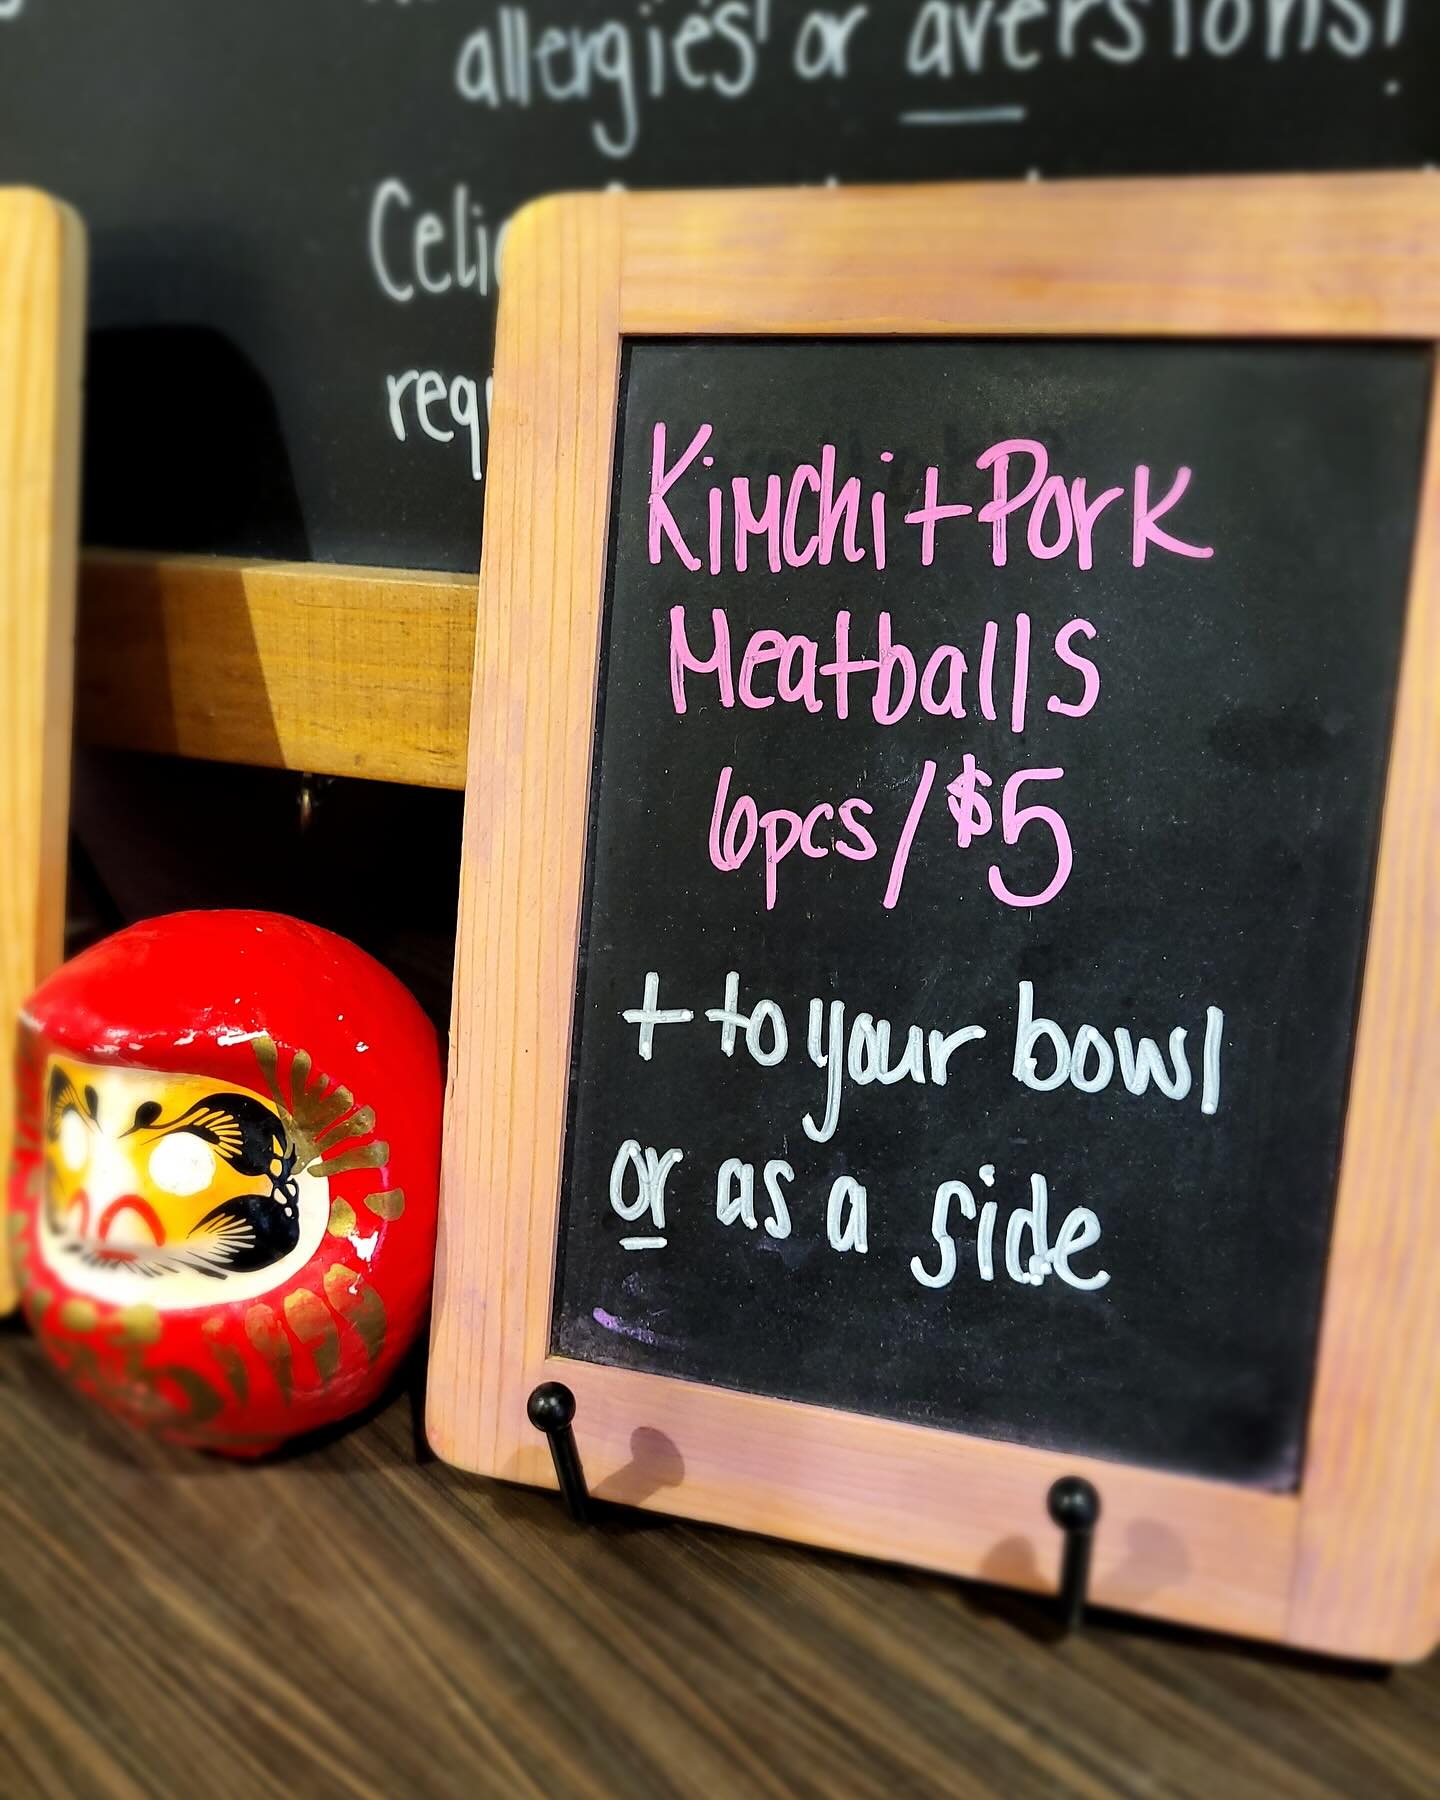 allergies or aversions!
Kimchi + Pork
Meatballs
6pcs/$5
+ to your bowl
or as a side